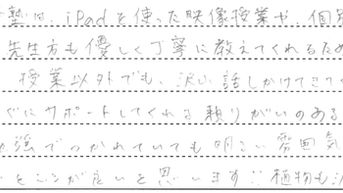 塾は、iPadを使った映像授業や、個別
先生方も優しく丁寧に教えてくれるため
授業以外でも、沢山話しかけてきてく
ぐにサポートしてくれる頼りがいのある
勉強でつかれていても明るい雰囲気
いところが良いと思います!! 植物も